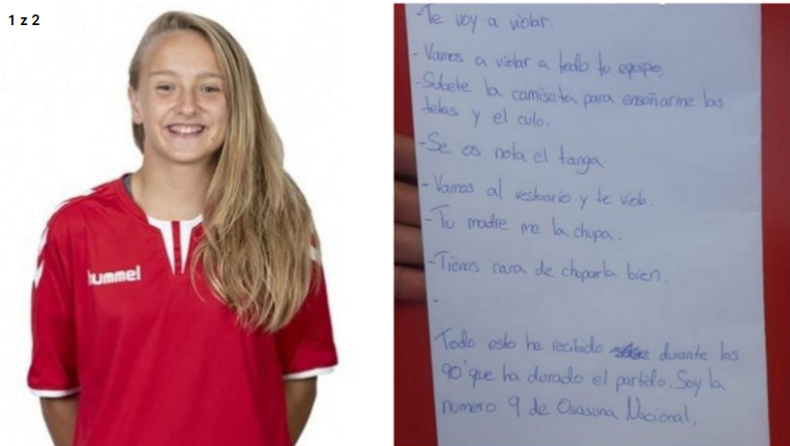 1 z 2
hummel
-Te voy a violar.
- Vamos a violar a todo tu equipo.
-Subete la camiseta para enseñarme las
tetas y el culo.
-Se os nota el tanga.
- Vamos al vestuario y te violo.
-Tu madre me la chupa.
-Tienes cara de chuparla bien.
-
Todo esto he recibido durante los
90' que ha durado el partido. Soy la
numero 9 de Osasuna Nacional.